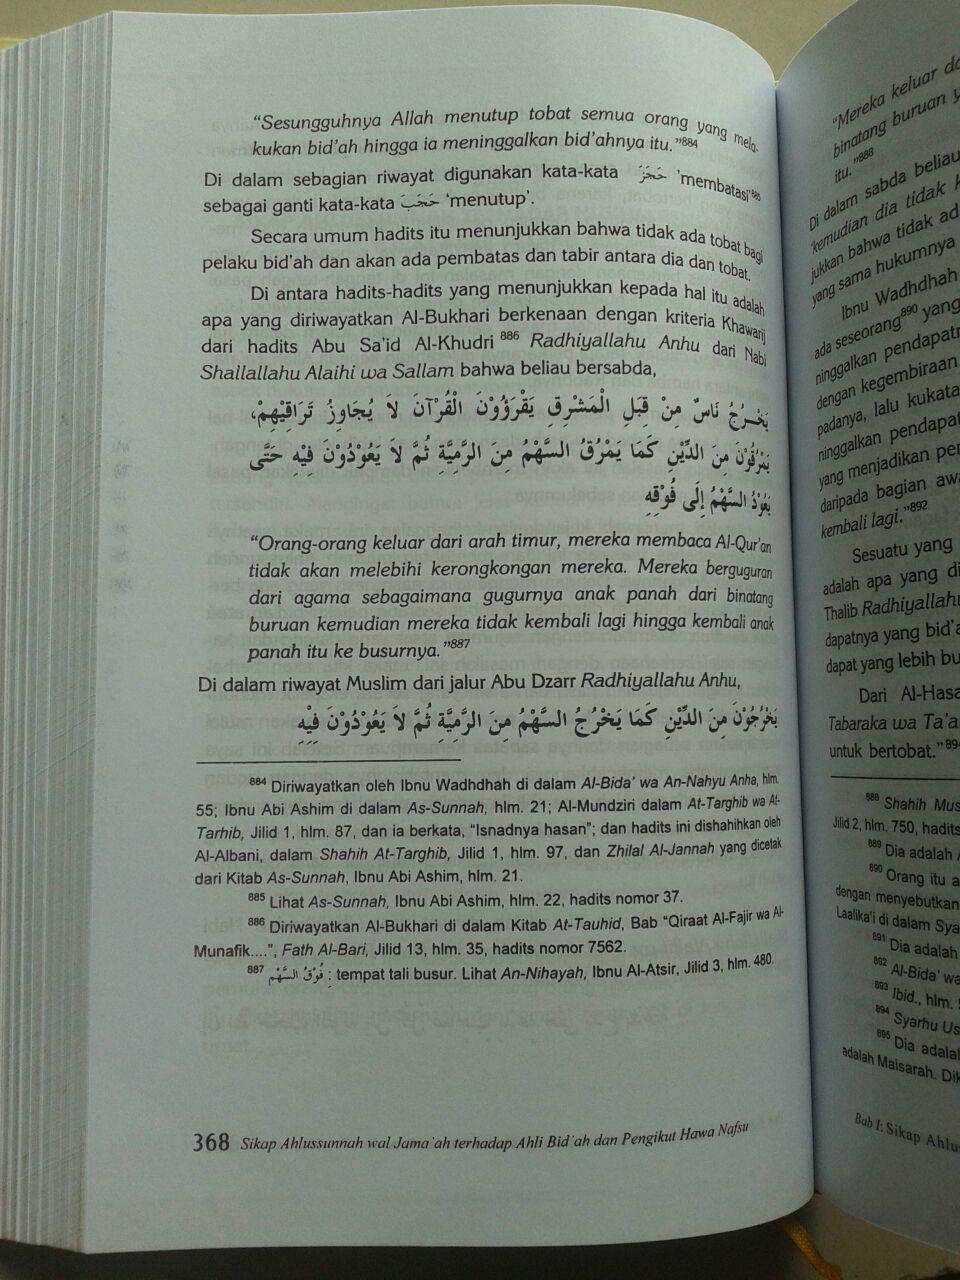 “Sesungguhnya Allah menutup tobat semua orang yang mela-
kukan bid’ah hingga ia meninggalkan bid’ahnya itu.”884
Di dalam sebagian riwayat digunakan kata-kata حَجَزَ ‘membatasi’885
sebagai ganti kata-kata حَجَبَ ‘menutup’.
Secara umum hadits itu menunjukkan bahwa tidak ada tobat bagi
pelaku bid’ah dan akan ada pembatas dan tabir antara dia dan tobat.
Di antara hadits-hadits yang menunjukkan kepada hal itu adalah
apa yang diriwayatkan Al-Bukhari berkenaan dengan kriteria Khawarij
dari hadits Abu Sa’id Al-Khudri 886 Radhiyallahu Anhu dari Nabi
Shallallahu Alaihi wa Sallam bahwa beliau bersabda,
يَخْرُجُ نَاسٌ مِنْ قِبَلِ الْمَشْرِقِ يَقْرَؤُوْنَ الْقُرْآنَ لاَ يُجَاوِزُ تَرَاقِيْهِمْ،
يَمْرُقُوْنَ مِنَ الدِّيْنِ كَمَا يَمْرُقُ السَّهْمُ مِنَ الرَّمِيَّةِ ثُمَّ لاَ يَعُوْدُوْنَ فِيْهِ حَتَّى
يَعُوْدُ السَّهْمُ إِلَى فُوْقِهِ
“Orang-orang keluar dari arah timur, mereka membaca Al-Qur’an
tidak akan melebihi kerongkongan mereka. Mereka berguguran
dari agama sebagaimana gugurnya anak panah dari binatang
buruan kemudian mereka tidak kembali lagi hingga kembali anak
panah itu ke busurnya.”887
Di dalam riwayat Muslim dari jalur Abu Dzarr Radhiyallahu Anhu,
يَخْرُجُوْنَ مِنَ الدِّيْنِ كَمَا يَخْرُجُ السَّهْمُ مِنَ الرَّمِيَّةِ ثُمَّ لاَ يَعُوْدُوْنَ فِيْهِ
884 Diriwayatkan oleh Ibnu Wadhdhah di dalam Al-Bida’ wa An-Nahyu Anha, hlm.
55; Ibnu Abi Ashim di dalam As-Sunnah, hlm. 21; Al-Mundziri dalam At-Targhib wa At-
Tarhib, Jilid 1, hlm. 87, dan ia berkata, “Isnadnya hasan”; dan hadits ini dishahihkan oleh
Al-Albani, dalam Shahih At-Targhib, Jilid 1, hlm. 97, dan Zhilal Al-Jannah yang dicetak
dari Kitab As-Sunnah, Ibnu Abi Ashim, hlm. 21.
885 Lihat As-Sunnah, Ibnu Abi Ashim, hlm. 22, hadits nomor 37.
886 Diriwayatkan Al-Bukhari di dalam Kitab At-Tauhid, Bab “Qiraat Al-Fajir wa Al-
Munafik....”, Fath Al-Bari, Jilid 13, hlm. 35, hadits nomor 7562.
887 فُوْقُ السَّهْمِ : tempat tali busur. Lihat An-Nihayah, Ibnu Al-Atsir, Jilid 3, hlm. 480.
368 Sikap Ahlussunnah wal Jama’ah terhadap Ahli Bid’ah dan Pengikut Hawa Nafsu
“Mereka keluar
binatang buruan
itu.”888
Di dalam sabda beliau
‘kemudian dia tidak
jukkan bahwa tidak
yang sama hukumnya
Ibnu Wadhdhah
ada seseorang890 yang
ninggalkan
dengan kegembiraan
padanya, lalu
ninggalkan
yang menjadikan
daripada bagian
kembali lagi.”892
Sesuatu yang
adalah apa yang
Thalib Radhiyallahu
dapatnya yang
dapat yang lebih
Dari
Tabaraka wa
untuk bertobat.”894
888 Shahih
Jilid 2, hlm. 750,
889 Dia adalah
890 Orang itu
dengan menyebutkan
Laalika’i di dalam
891 Dia adalah
892 Al-Bida’
893 Ibid., hlm.
894 Syarhu
895 Dia
adalah Maisarah.
Bab I: Sikap